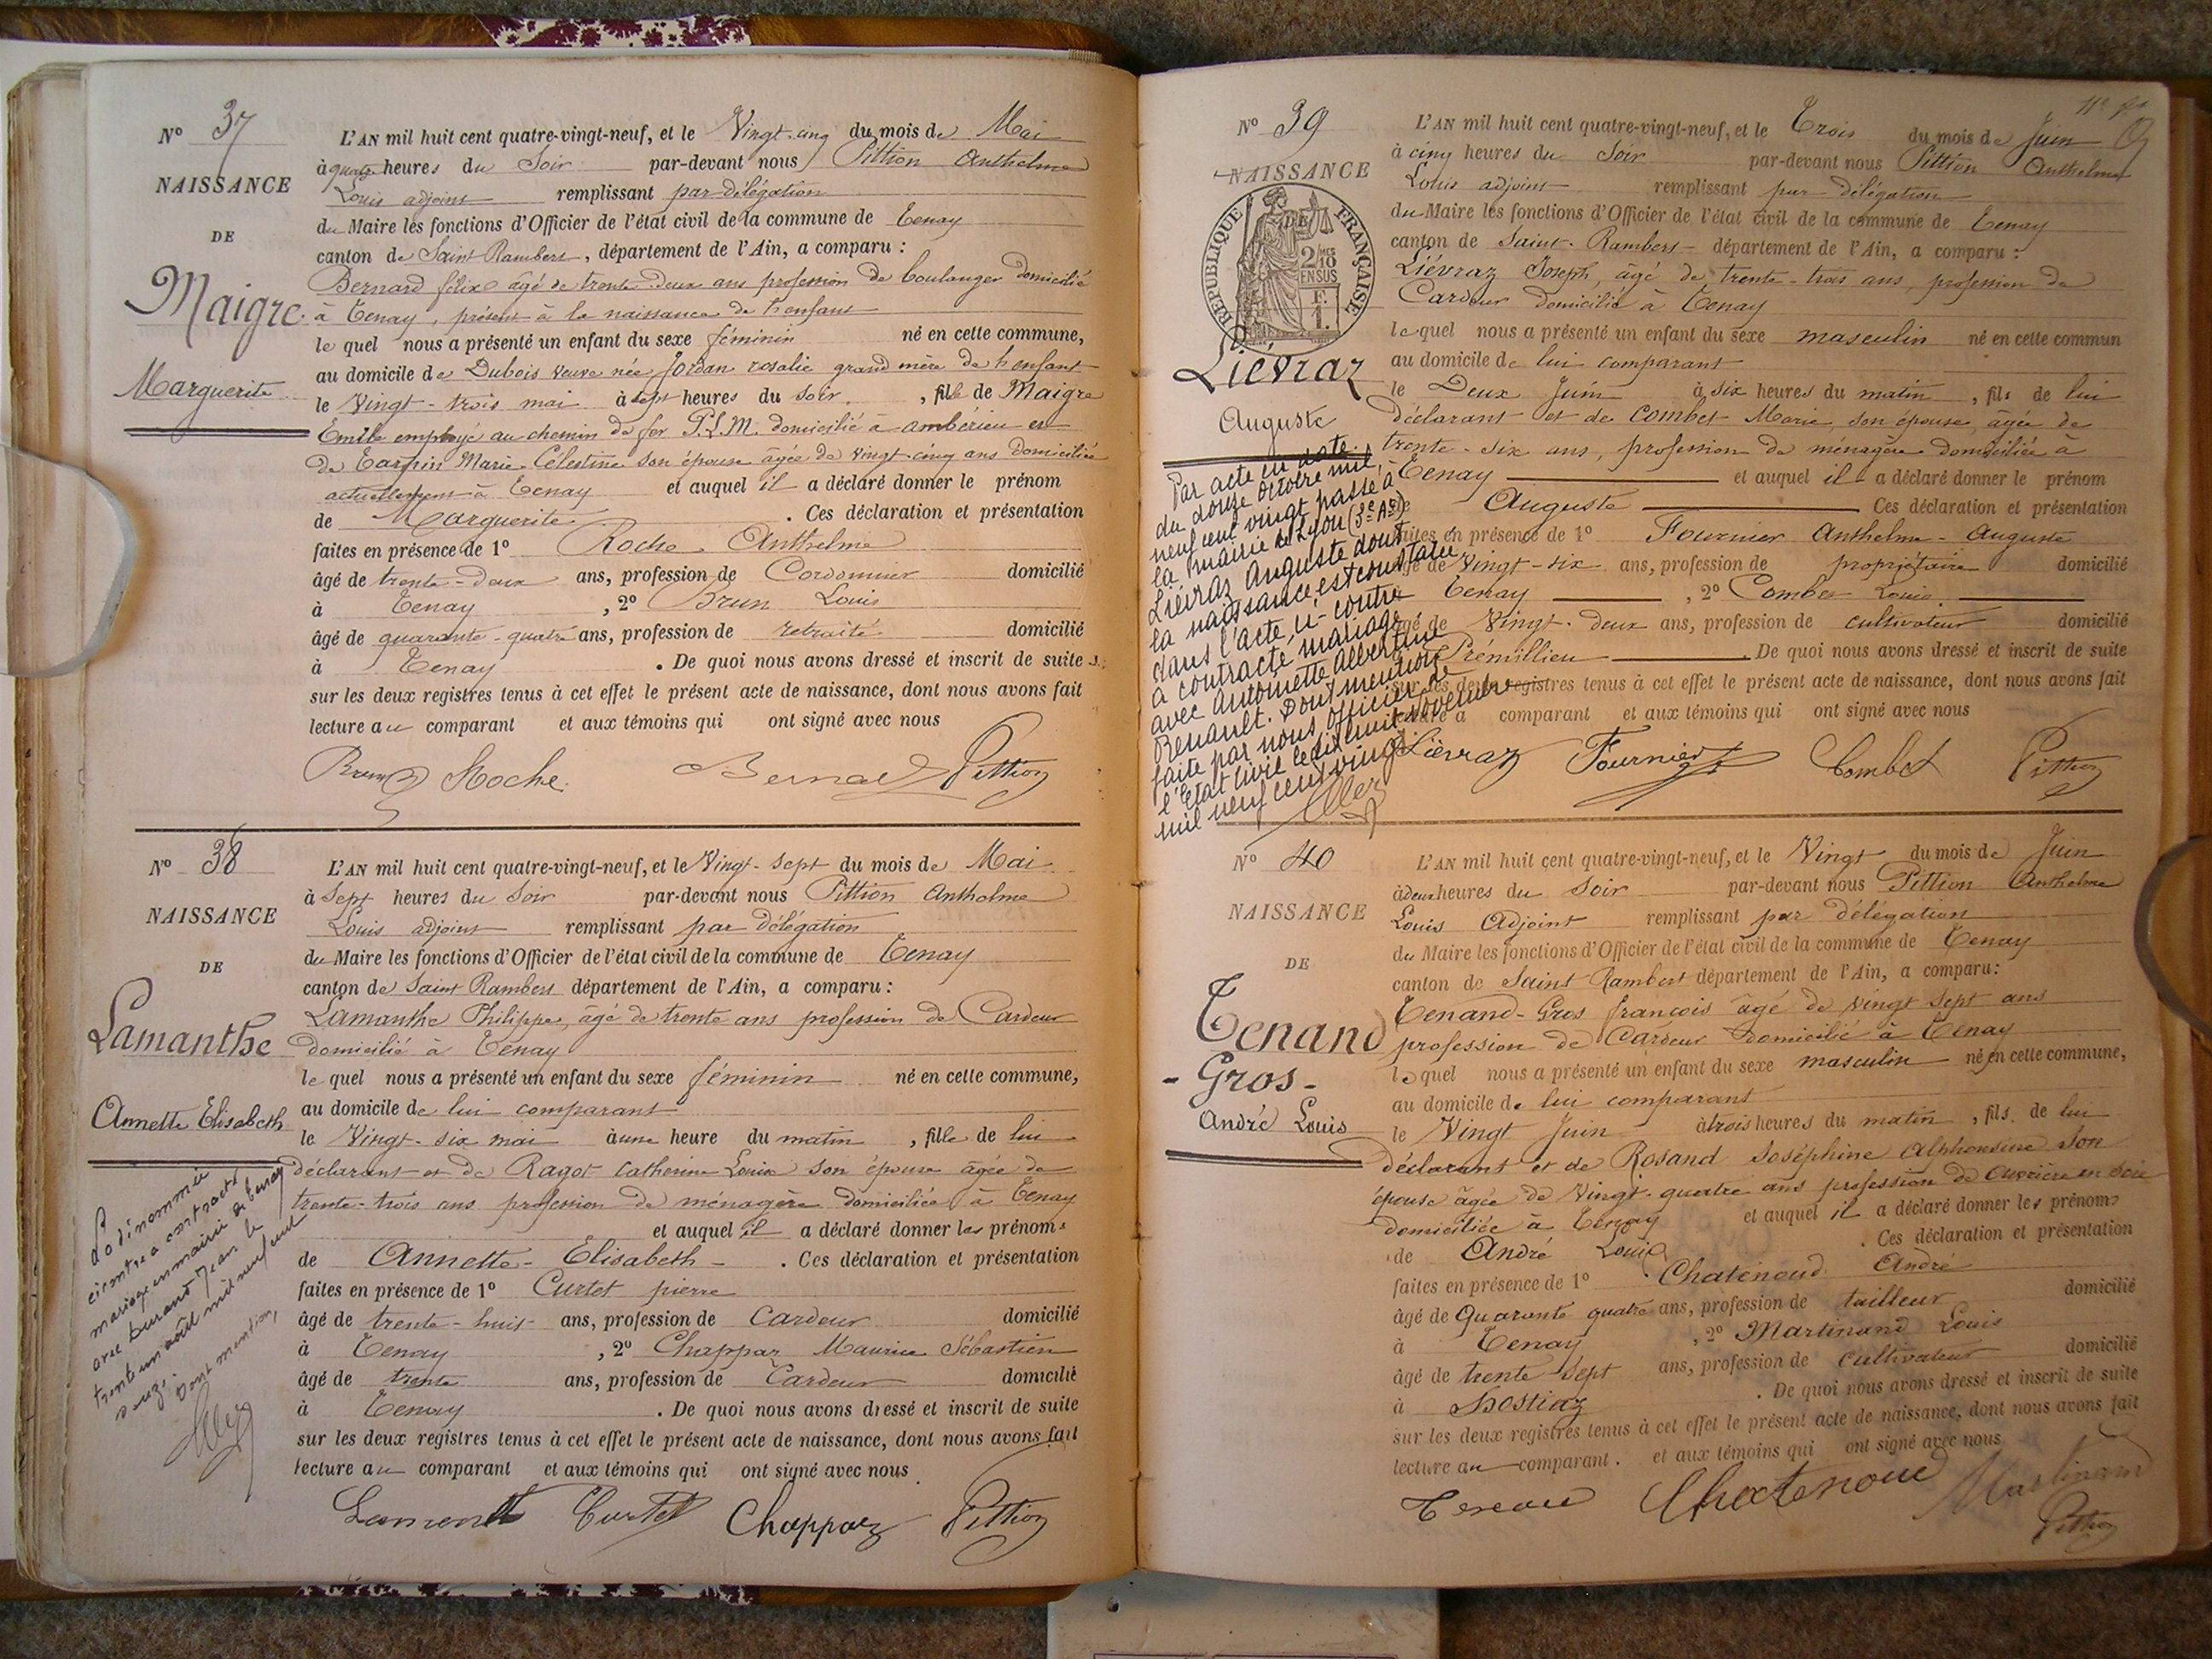 N° 37
NAISSANCE
DE
Maigre
Marguerite
L'AN mil huit cent quatre-vingt-neuf, et le Vingt-cinq du mois de Mai
à quatre heures du Soir par-devant nous Pittion Anthelme
Louis adjoint remplissant par délégation
du Maire les fonctions d'Officier de l'état civil de la commune de Tenay
canton de Saint Rambert, département de l'Ain, a comparu :
Bernard félix âgé de trente-deux ans profession de boulanger domicilié
à Tenay, présent à la naissance de l'enfant
lequel nous a présenté un enfant du sexe féminin né en cette commune,
au domicile de Dubois veuve née Jordan rosalie grand mère de l'enfant
le Vingt-trois mai à sept heures du soir, fille de Maigre
Emile employé au chemin de fer P.L.M. domicilié à ambérieu et
de Marie Célestine son épouse âgée de vingt-cinq ans domiciliée
actuellement à Tenay et auquel il a déclaré donner le prénom
de Marguerite. Ces déclaration et présentation
faites en présence de 1° Roche Anthelme
âgé de trente-deux ans, profession de Cordonnier domicilié
à Tenay, 2° Brun Louis
âgé de quarante-quatre ans, profession de retraité domicilié
à Tenay. De quoi nous avons dressé et inscrit de suite
sur les deux registres tenus à cet effet le présent acte de naissance, dont nous avons fait
lecture au comparant et aux témoins qui ont signé avec nous
Brun Roche Bernard Pittion
N° 38
NAISSANCE
DE
Lamanthe
Annette Elisabeth
La dénommée
ci contre a contracté
mariage en mairie de Tenay
avec Durand Jean le
trente un août mil neuf cent
onze. Dont mention,
L'AN mil huit cent quatre-vingt-neuf, et le Vingt-sept du mois de Mai
à Sept heures du Soir par-devant nous Pittion Anthelme
Louis adjoint remplissant par délégation
du Maire les fonctions d'Officier de l'état civil de la commune de Tenay
canton de Saint Rambert département de l'Ain, a comparu :
Lamanthe Philippe, âgé de trente ans profession de Cardeur
domicilié à Tenay
lequel nous a présenté un enfant du sexe féminin né en cette commune,
au domicile de lui comparant
le Vingt-six mai à une heure du matin, fille de lui
déclarant et de Ragot Catherine Louise son épouse âgée de
trente-trois ans profession de ménagère domiciliée à Tenay
et auquel il a déclaré donner les prénoms
de Annette-Elisabeth. Ces déclaration et présentation
faites en présence de 1° Curtet pierre
âgé de trente-huit ans, profession de Cardeur domicilié
à Tenay, 2° Chappaz Maurice Sébastien
âgé de trente ans, profession de Cardeur domicilié
à Tenay. De quoi nous avons dressé et inscrit de suite
sur les deux registres tenus à cet effet le présent acte de naissance, dont nous avons fait
lecture au comparant et aux témoins qui ont signé avec nous
Curtet Chappaz Pittion
N° 39
NAISSANCE
RÉPUBLIQUE FRANÇAISE
DE
2/10
EN SUS
F.
1.
Liévraz
Auguste
Par acte en date
du douze octobre mil
neuf cent vingt passé à
la mairie de Lyon (3e Art)
Liévraz Auguste dont
la naissance est constatée
dans l'acte ci-contre
a contracté mariage
avec Antoinette Albertine
Benault. Dont mention
faite par nous officier de
l'Etat civil le dix huit Novembre
mil neuf cent vingt
L'AN mil huit cent quatre-vingt-neuf, et le Trois du mois de Juin
à cinq heures du Soir par-devant nous Pittion Anthelme
Louis adjoint remplissant par délégation
du Maire les fonctions d'Officier de l'état civil de la commune de Tenay
canton de Saint-Rambert département de l'Ain, a comparu :
Liévraz Joseph, âgé de trente-trois ans, profession de
Cardeur domicilié à Tenay
lequel nous a présenté un enfant du sexe masculin né en cette commun
au domicile de lui comparant
le Deux Juin à six heures du matin, fils de lui
déclarant et de Combet Marie, son épouse, âgée de
trente-six ans, profession de ménagère domiciliée à
Tenay et auquel il a déclaré donner le prénom
Auguste Ces déclaration et présentation
faites en présence de 1° Fournier Anthelme-Auguste
âgé de Vingt-six ans, profession de propriétaire domicilié
Tenay, 2° Combet Louis
âgé de Vingt-deux ans, profession de cultivateur domicilié
Prémillieu. De quoi nous avons dressé et inscrit de suite
sur les deux registres tenus à cet effet le présent acte de naissance, dont nous avons fait
lecture a comparant et aux témoins qui ont signé avec nous
Liévraz Fournier Combet Pittion
N° 40
NAISSANCE
DE
Tenand
-Gros-
André Louis
L'AN mil huit cent quatre-vingt-neuf, et le Vingt du mois de Juin
à deux heures du Soir par-devant nous Pittion Anthelme
Louis Adjoint remplissant par délégation
du Maire les fonctions d'Officier de l'état civil de la commune de Tenay
canton de Saint Rambert département de l'Ain, a comparu :
Tenand-Gros françois âgé de vingt sept ans
profession de Cardeur domicilié à Tenay
lequel nous a présenté un enfant du sexe masculin né en cette commune,
au domicile de lui comparant
le Vingt Juin à trois heures du matin, fils de lui
déclarant et de Rosand Joséphine Alphonsine son
épouse âgée de Vingt-quatre ans profession de Ouvrière en soie
domiciliée à Tenay et auquel il a déclaré donner les prénoms
de André Louis. Ces déclaration et présentation
faites en présence de 1° Chatenoud André
âgé de Quarante quatre ans, profession de tailleur domicilié
à Tenay, 2° Martinand Louis
âgé de trente Sept ans, profession de Cultivateur domicilié
à Hostiaz. De quoi nous avons dressé et inscrit de suite
sur les deux registres tenus à cet effet le présent acte de naissance, dont nous avons fait
lecture au comparant. et aux témoins qui ont signé avec nous
Chatenoud Martinand
Pittion